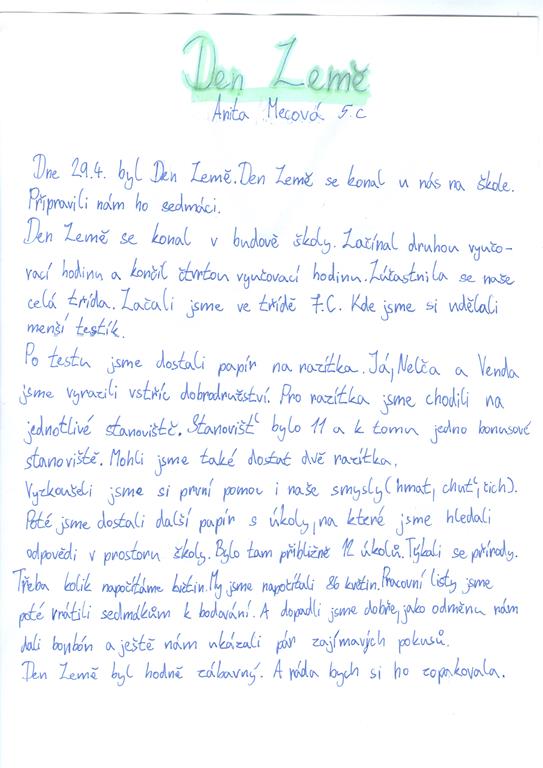 Den Země
Anita Mecová 5.c
Dne 29.4. byl Den Země. Den Země se konal u nás na škole.
Připravili nám ho sedmáci.
Den Země se konal v budově školy. Začínal druhou vyučo-
vací hodinu a končil čtvrtou vyučovací hodinu. Zúčastnila se naše
celá třída. Začali jsme ve třídě 7.C. Kde jsme si udělali
menší testík.
Po testu jsme dostali papír na razítka. Já, Nelča a Venda
jsme vyrazili vstříc dobrodružství. Pro razítka jsme chodili na
jednotlivé stanoviště. Stanovišť bylo 11 a k tomu jedno bonusové
stanoviště. Mohli jsme také dostat dvě razítka.
Vyzkoušeli jsme si první pomoc i naše smysly (hmat, chuť, čich).
Poté jsme dostali další papír s úkoly, na které jsme hledali
odpovědi v prostoru školy. Bylo tam přibližně 12 úkolů. Týkali se přírody.
Třeba kolik napočítáme květin. My jsme napočítali 86 květin. Pracovní listy jsme
poté vrátili sedmákům k bodování. A dopadli jsme dobře, jako odměnu nám
dali bonbón a ještě nám ukázali pár zajímavých pokusů.
Den Země byl hodně zábavný. A ráda bych si ho zopakovala.